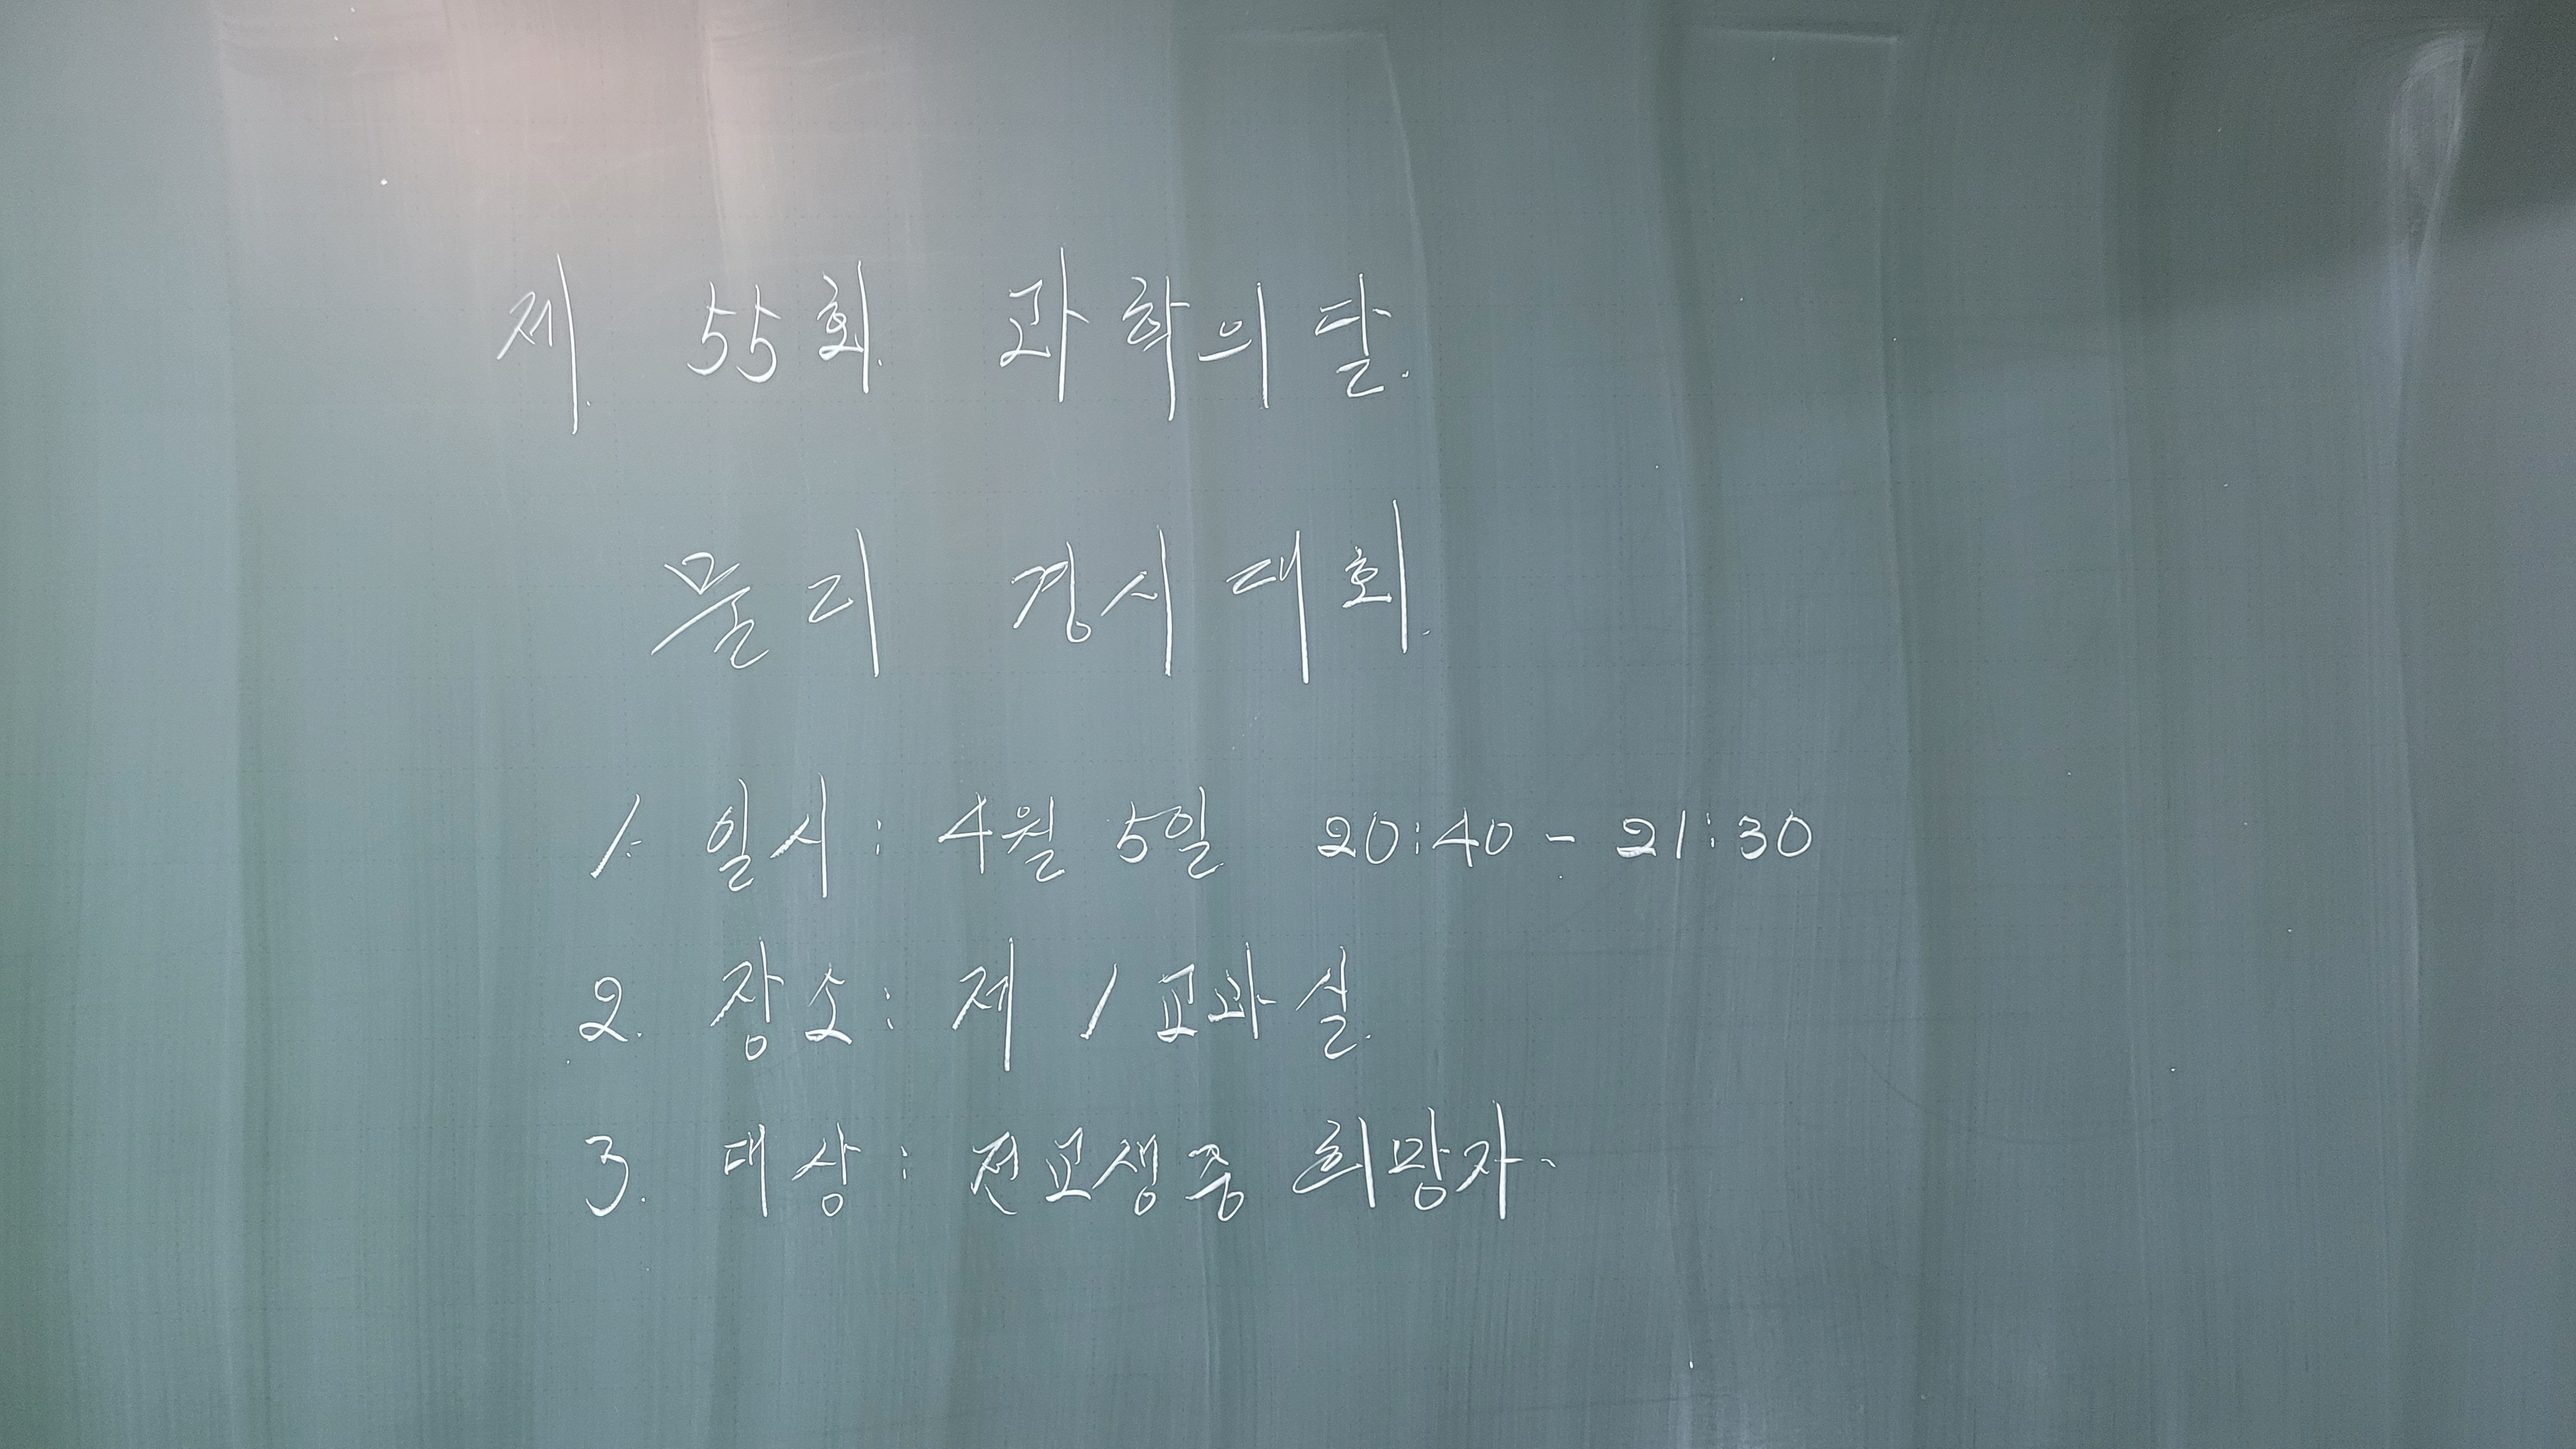 제 55회 과학의 달
물리 경시대회
1. 일시: 4월 5일 20:40 - 21:30
2. 장소: 제 1교과실
3. 대상: 전교생중 희망자.